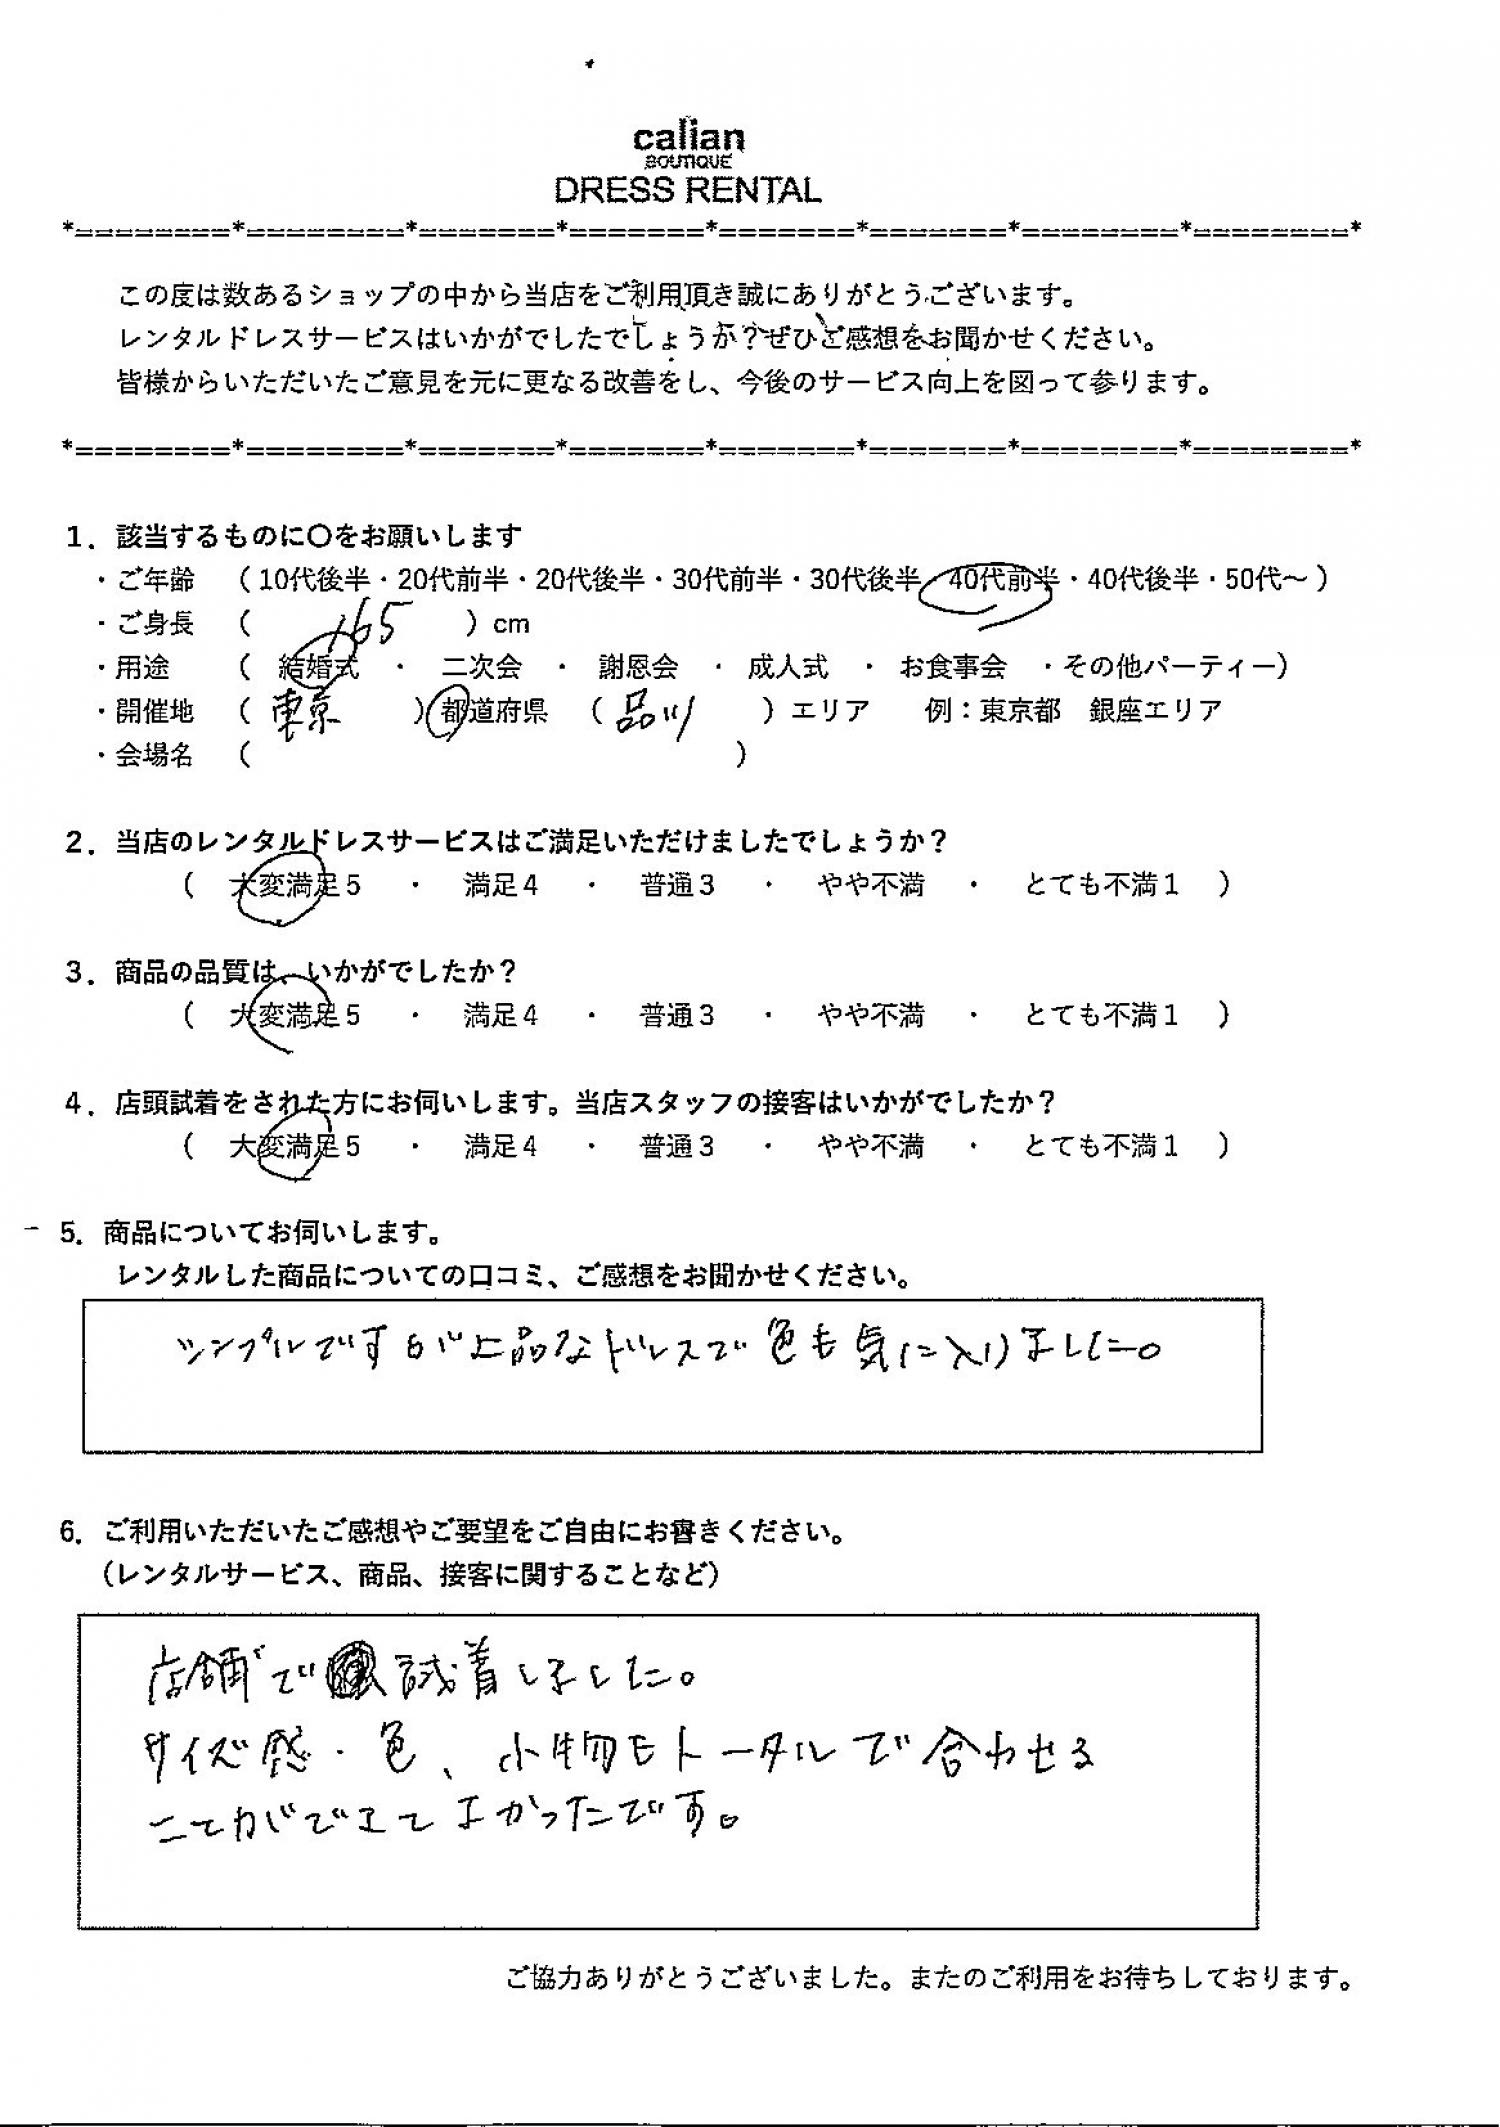 calian
BOUTIQUE
DRESS RENTAL
*========*========*=======*=======*=======*=======*========*========*
この度は数あるショップの中から当店をご利用頂き誠にありがとうございます。
レンタルドレスサービスはいかがでしたでしょうか？ぜひご感想をお聞かせください。
皆様からいただいたご意見を元に更なる改善をし、今後のサービス向上を図って参ります。
*========*========*=======*=======*=======*=======*========*========*
1．該当するものに〇をお願いします
・ご年齢 （ 10代後半・20代前半・20代後半・30代前半・30代後半・40代前半・40代後半・50代～ ）
・ご身長 （ 165 ）cm
・用途 （ 結婚式 ・ 二次会 ・ 謝恩会 ・ 成人式 ・ お食事会 ・その他パーティー）
・開催地 （ 東京 ）都道府県 （ 品川 ）エリア 例：東京都 銀座エリア
・会場名 （ ）
2．当店のレンタルドレスサービスはご満足いただけましたでしょうか？
（ 大変満足５ ・ 満足４ ・ 普通３ ・ やや不満 ・ とても不満１ ）
3．商品の品質は、いかがでしたか？
（ 大変満足５ ・ 満足４ ・ 普通３ ・ やや不満 ・ とても不満１ ）
4．店頭試着をされた方にお伺いします。当店スタッフの接客はいかがでしたか？
（ 大変満足５ ・ 満足４ ・ 普通３ ・ やや不満 ・ とても不満１ ）
5．商品についてお伺いします。
レンタルした商品についての口コミ、ご感想をお聞かせください。
シンプルですが上品なドレスで色も気に入りました。
6．ご利用いただいたご感想やご要望をご自由にお書きください。
（レンタルサービス、商品、接客に関することなど）
店舗で試着しました。
サイズ感・色、小物もトータルで合わせる
ことができてよかったです。
ご協力ありがとうございました。またのご利用をお待ちしております。